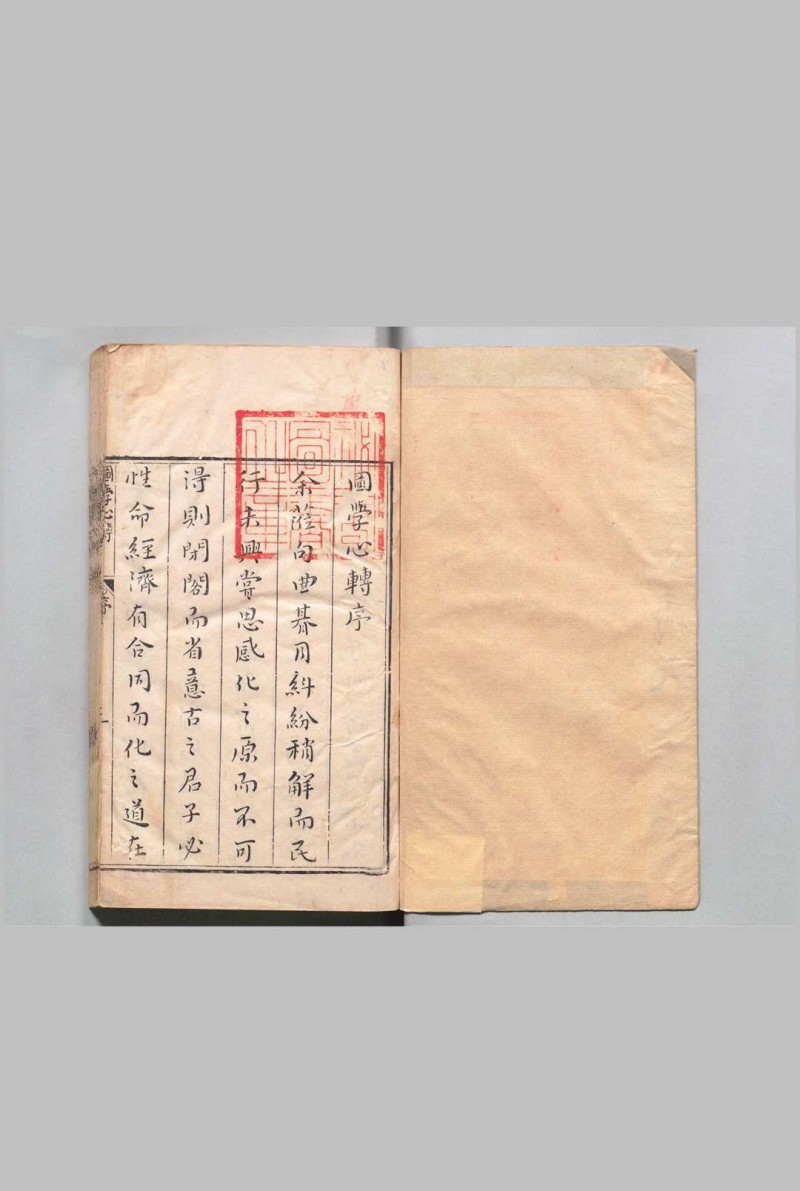 圖學心轉序
余蒞句曲朞月糾紛稍解而民
行未興嘗思感化之原而不可
得則閉閣而省意古之君子必
性命經濟有合同而化之道在
圖學心轉
序
一